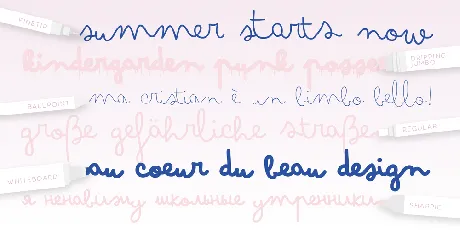 FINETIP
summer starts now
kindergarden punk posse
DRIPPING JUMBO
BALLPOINT
ma cristian è un bimbo bello!
große gefährliche straße
REGULAR
au coeur du beau design
WHITEBOARD
я ненавижу школьные утренники
SHARPIC